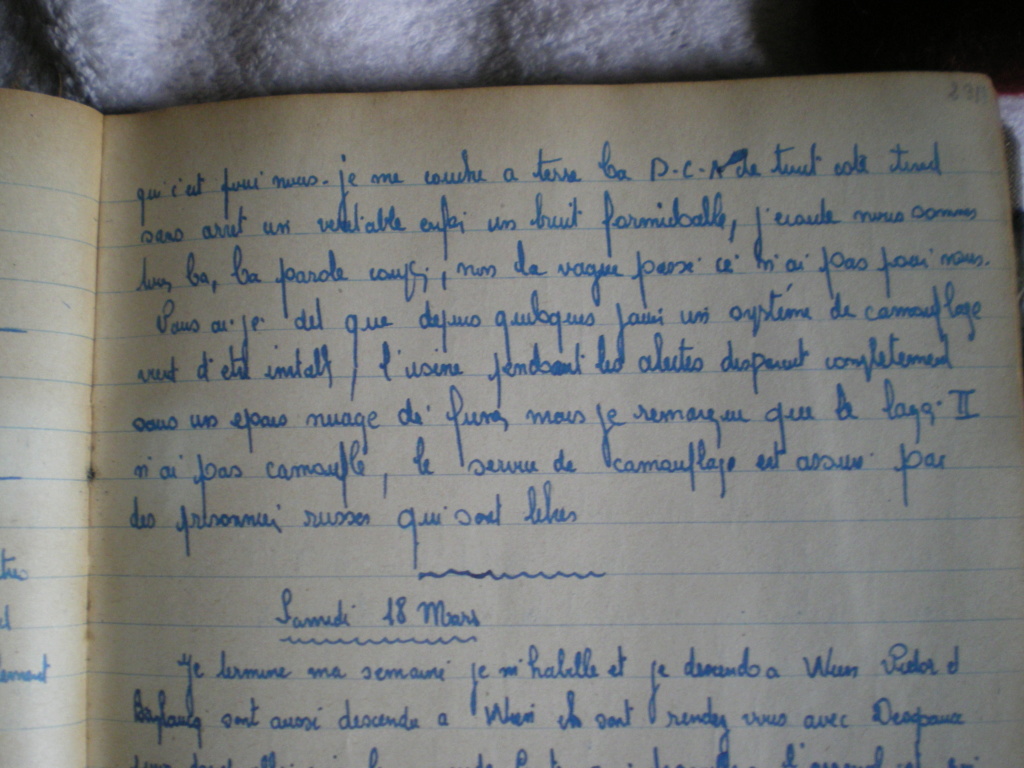 qui c'est pour nous. je me couche a terre la D.C.A de tout coté tired
sans arret un veritable enfer un bruit formidable, j'ecoute nous sommes
tous la, la parole coupé, non la vague passe ce n'ai pas pour nous.
Vous ai-je dit que depuis quelques jours un systéme de camouflage
vient d'etre installé, l'usine pendant les alertes disparait completement
sous un epais nuage de fumé, mais je remarque que le lager II
n'ai pas camouflé, le service de camouflage est assuré par
des prisonnier russes qui sont libres
Samedi 18 Mars
Je termine ma semaine je m'habille et je descends a Wien Victor et
sont aussi descendu a Wien ils ont rendez vous avec Despaux